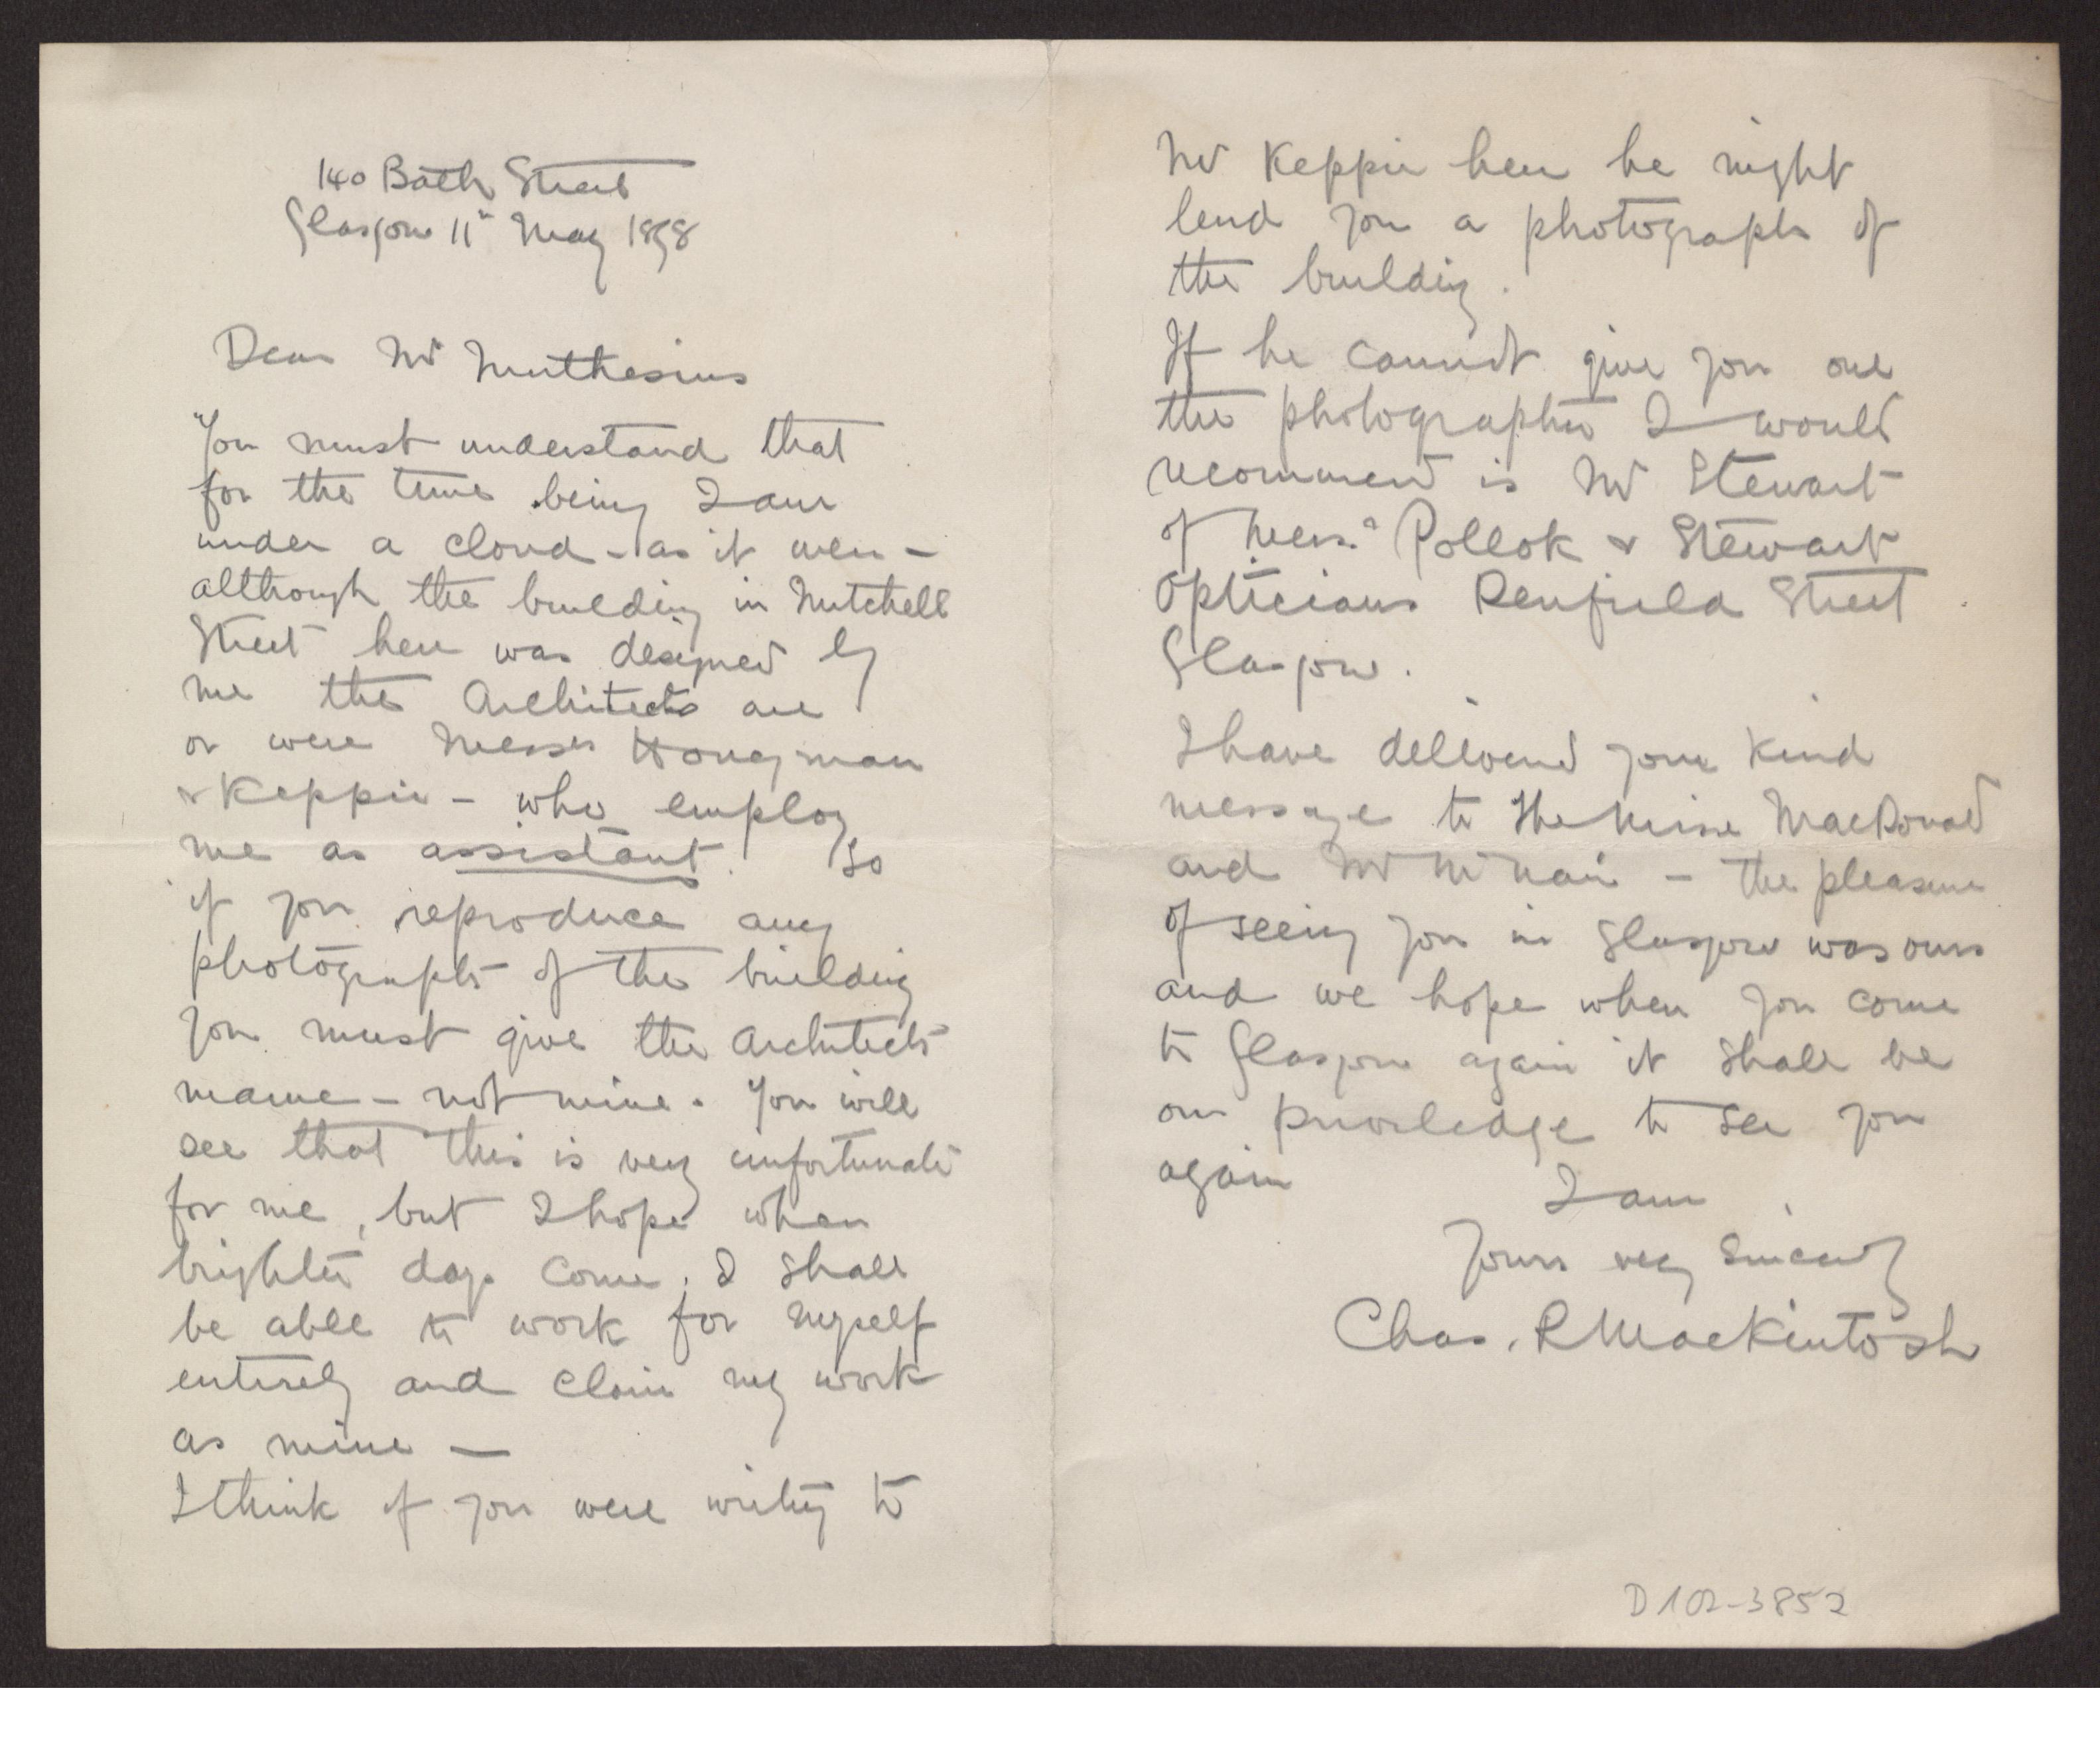 140 Bath Street
Glasgow 11th May 1898
Dear Mr Muthesius
You must understand that
for the time being I am
under a cloud – as it were –
although the building in Mitchell
Street here was designed by
me the Architects are
or were Messrs Honeyman
& Keppie – who employ
me as assistant. So
if you reproduce any
photographs of the building
you must give the architects
name – not mine. You will
see that this is very unfortunate
for me, but I hope when
brighter days come, I shall
be able to work for myself
entirely and claim my work
as mine —
I think if you were writing to
Mr Keppie here he might
lend you a photograph of
the building.
If he cannot give you one
the photographer I would
recommend is Mr Stewart
of Messrs Pollok & Stewart
Opticians Renfield Street
Glasgow.
I have delivered your kind
message to the Misses MacDonald
and Mr McNair – the pleasure
of seeing you in Glasgow was ours
and we hope when you come
to Glasgow again it shall be
our priviledge to see you
again
I am
Yours very Sincerely
Chas. R Mackintosh
D 102-3852